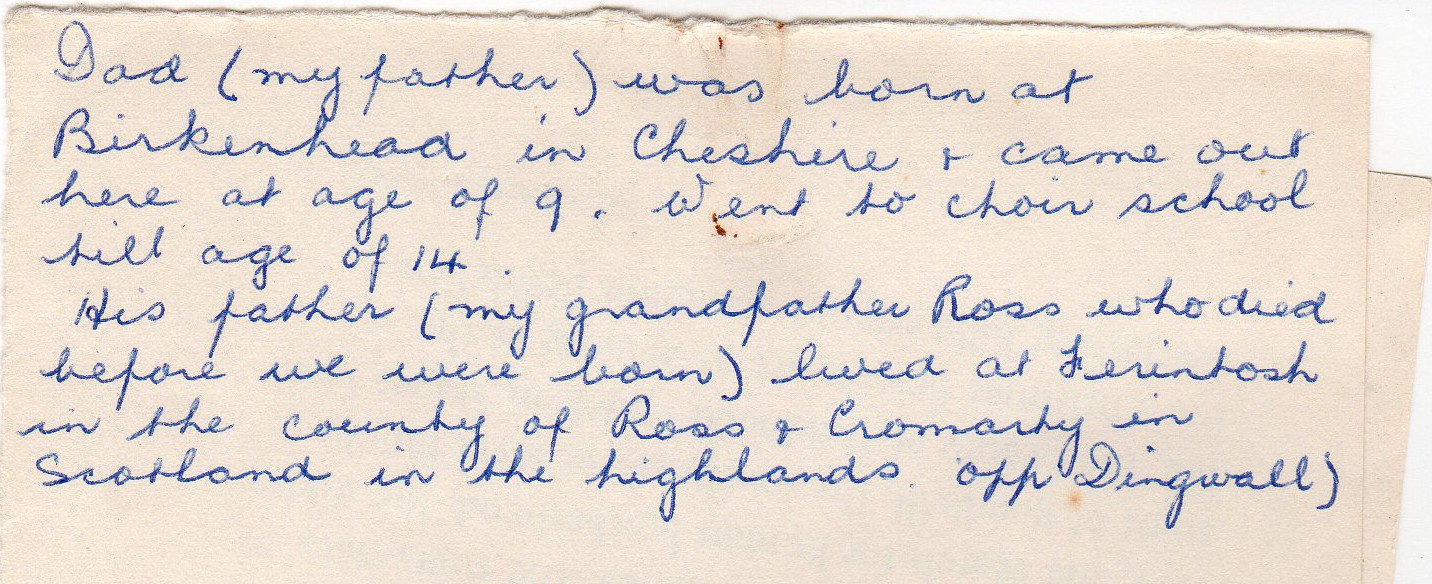 Dad (my father) was born at
Birkenhead in Cheshire & came out
here at age of 9. Went to choir school
till age of 14.
His father (my grandfather Ross who died
before we were born) lived at Ferintosh
in the county of Ross & Cromarty in
Scotland in the highlands. opp Dingwall)